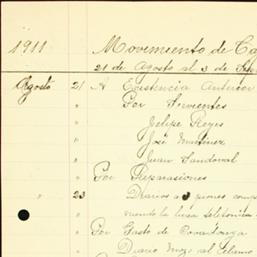 1911 Movimiento de Ca
21 de Agosto al 3 de Sep
Agosto 21 A Existencia Anterior
" Por Sirvientes
" Felipe Reyes
" José Martinez
" Juan Sandoval
" Por Reparasiones
" 23 Diarios a 3 piones comp
niendo la linea telefonica
" Por Gasto de Covadonga
Diario mozo al